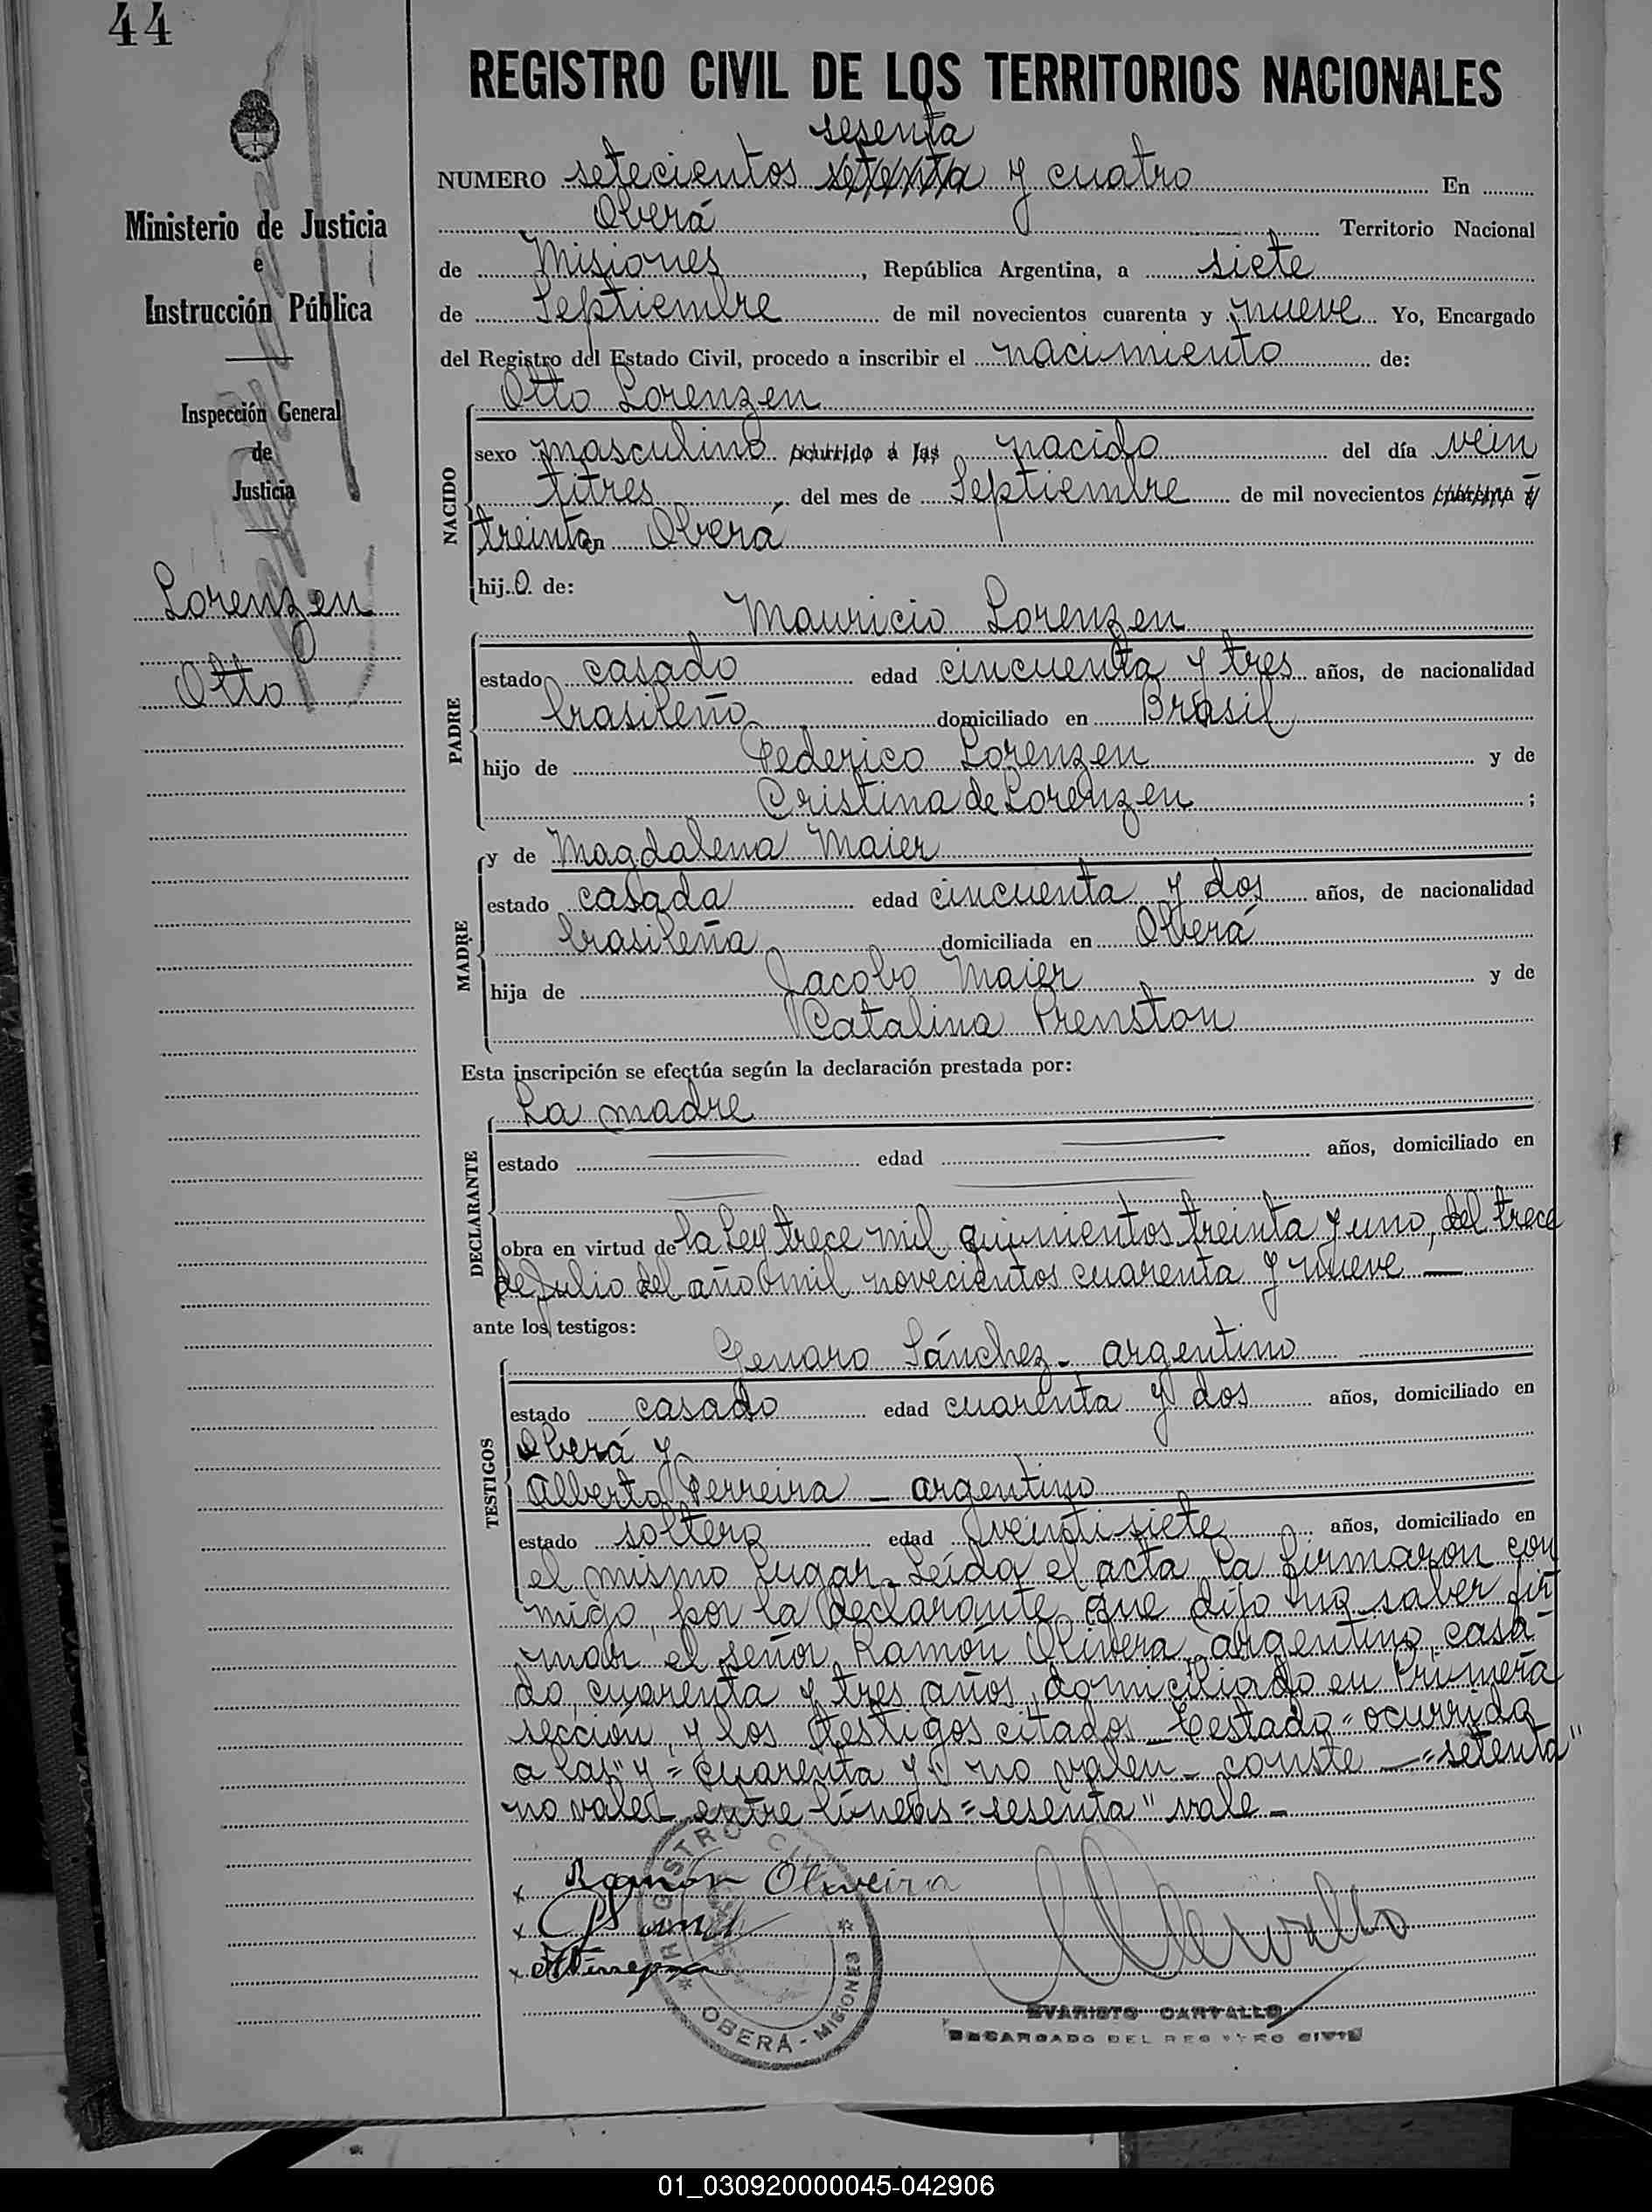 44
REGISTRO CIVIL DE LOS TERRITORIOS NACIONALES
sesenta
NUMERO setecientos setenta y cuatro En
Oberá Territorio Nacional
de Misiones, República Argentina, a siete
de Septiembre de mil novecientos cuarenta y nueve Yo, Encargado
del Registro del Estado Civil, procedo a inscribir el nacimiento de:
Otto Lorenzen
NACIDO
sexo masculino ocurrido a las nacido del día vein
titres, del mes de Septiembre de mil novecientos cuarenta y
treinta en Oberá
hijo de:
Ministerio de Justicia
e
Instrucción Pública
Inspección General
de
Justicia
Lorenzen
Otto
PADRE
Mauricio Lorenzen
estado casado edad cincuenta y tres años, de nacionalidad
brasileño domiciliado en Brasil
hijo de Federico Lorenzen y de
Cristina de Lorenzen ;
MADRE
y de Magdalena Maier
estado casada edad cincuenta y dos años, de nacionalidad
brasileña domiciliada en Oberá
hija de Jacobo Maier y de
Catalina Prenston
Esta inscripción se efectúa según la declaración prestada por:
DECLARANTE
La madre
estado edad años, domiciliado en
obra en virtud de la Ley trece mil quinientos treinta y uno, del trece
de Julio del año mil novecientos cuarenta y nueve —
ante los testigos:
TESTIGOS
Genaro Sánchez - argentino
estado casado edad cuarenta y dos años, domiciliado en
Oberá y
Alberto Ferreira - argentino
estado soltero edad veintisiete años, domiciliado en
el mismo lugar. Leída el acta la firmaron con
migo, por la declarante que dijo no saber fir
mar el señor Ramón Olivera, argentino, casa
do, cuarenta y tres años, domiciliado en Primera
sección, y los testigos citados - Testado "ocurrido
a las" y "cuarenta y" no valen - conste - "setenta"
no vale - entre líneas = sesenta" vale -
x Ramón Oliveira
x
x
REGISTRO CIVIL
* OBERÁ - MISIONES *
EVARISTO CARVALLO
ENCARGADO DEL REGISTRO CIVIL
01_030920000045-042906